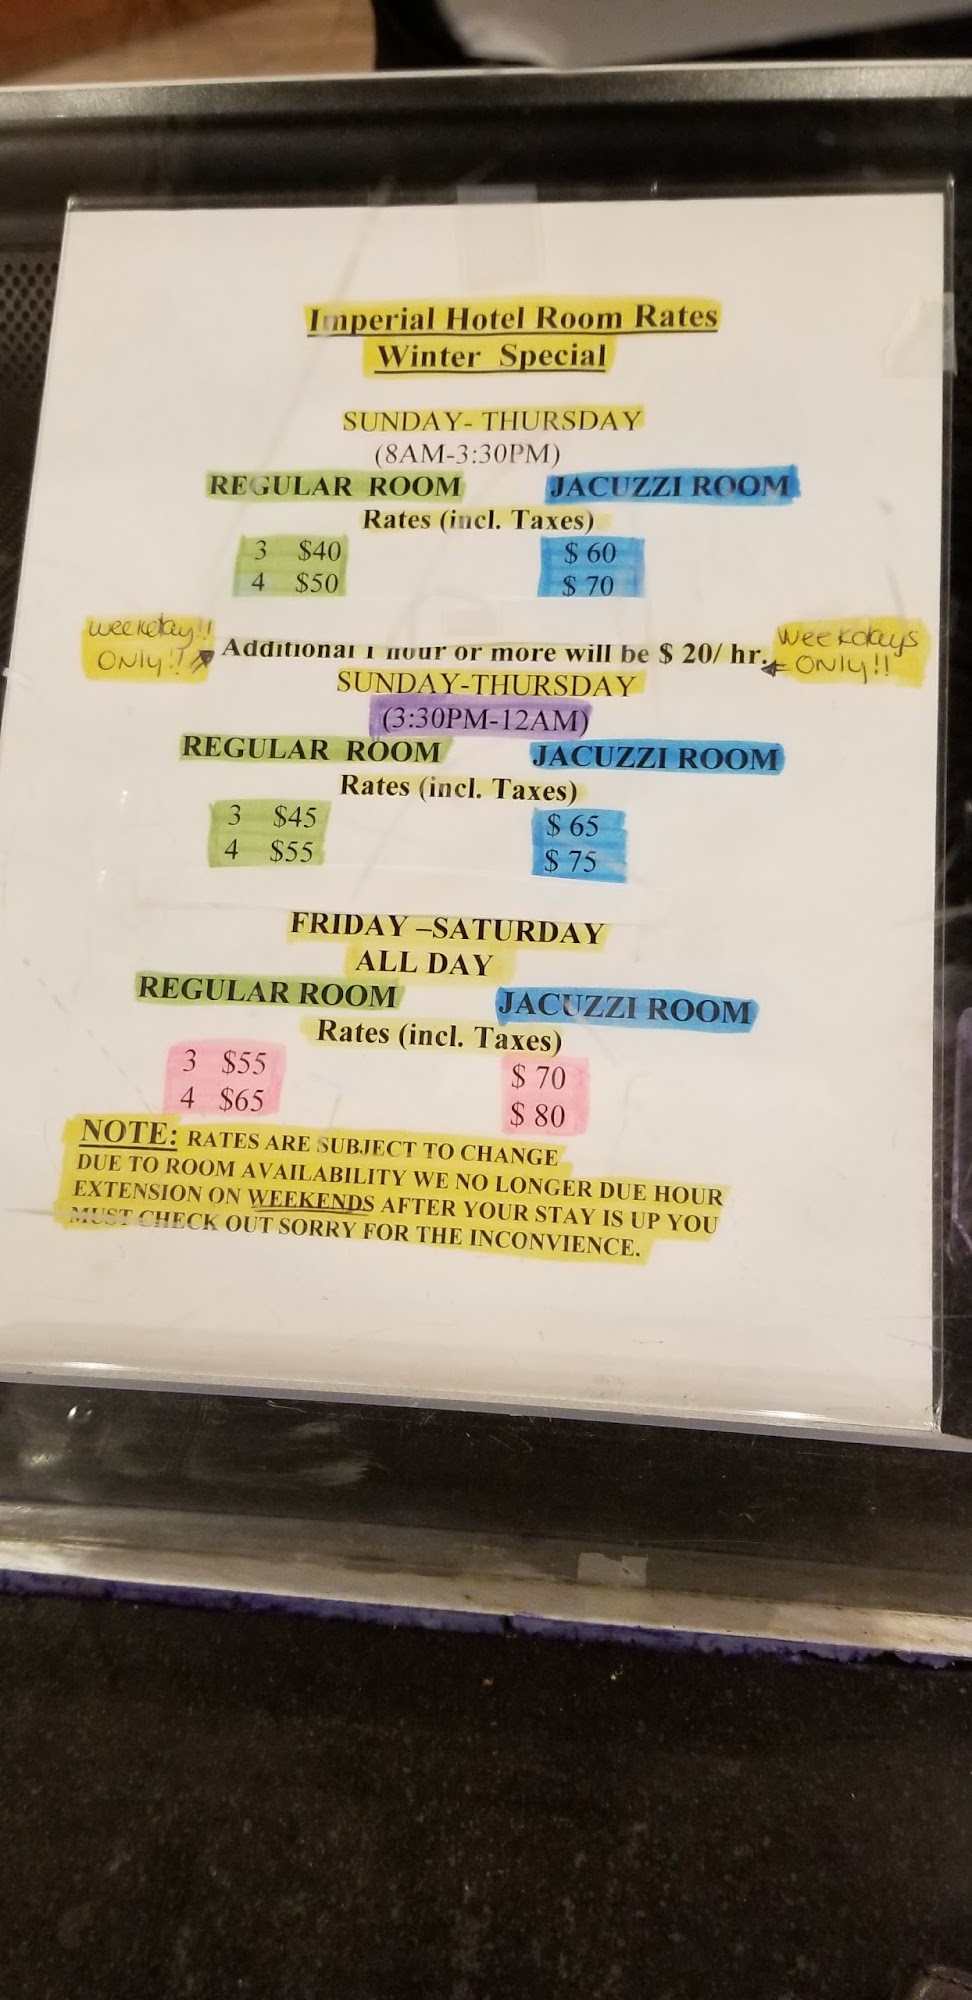 Imperial Hotel Room Rates
Winter Special
SUNDAY- THURSDAY
(8AM-3:30PM)
REGULAR ROOM JACUZZI ROOM
Rates (incl. Taxes)
3 $40 $ 60
4 $50 $ 70
weekday!! ONLY!! Additional 1 hour or more will be $ 20/ hr. Weekdays ONLY!!
SUNDAY-THURSDAY
(3:30PM-12AM)
REGULAR ROOM JACUZZI ROOM
Rates (incl. Taxes)
3 $45 $ 65
4 $55 $ 75
FRIDAY –SATURDAY
ALL DAY
REGULAR ROOM JACUZZI ROOM
Rates (incl. Taxes)
3 $55 $ 70
4 $65 $ 80
NOTE: RATES ARE SUBJECT TO CHANGE
DUE TO ROOM AVAILABILITY WE NO LONGER DUE HOUR
EXTENSION ON WEEKENDS AFTER YOUR STAY IS UP YOU
MUST CHECK OUT SORRY FOR THE INCONVIENCE.